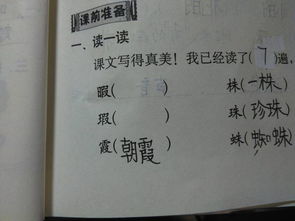 课前准备
一、读一读
课文写得真美！我已经读了(7)遍，
暇( ) 株(一株)
瑕( ) 珠(珍珠)
霞(朝霞) 蛛(蜘蛛)